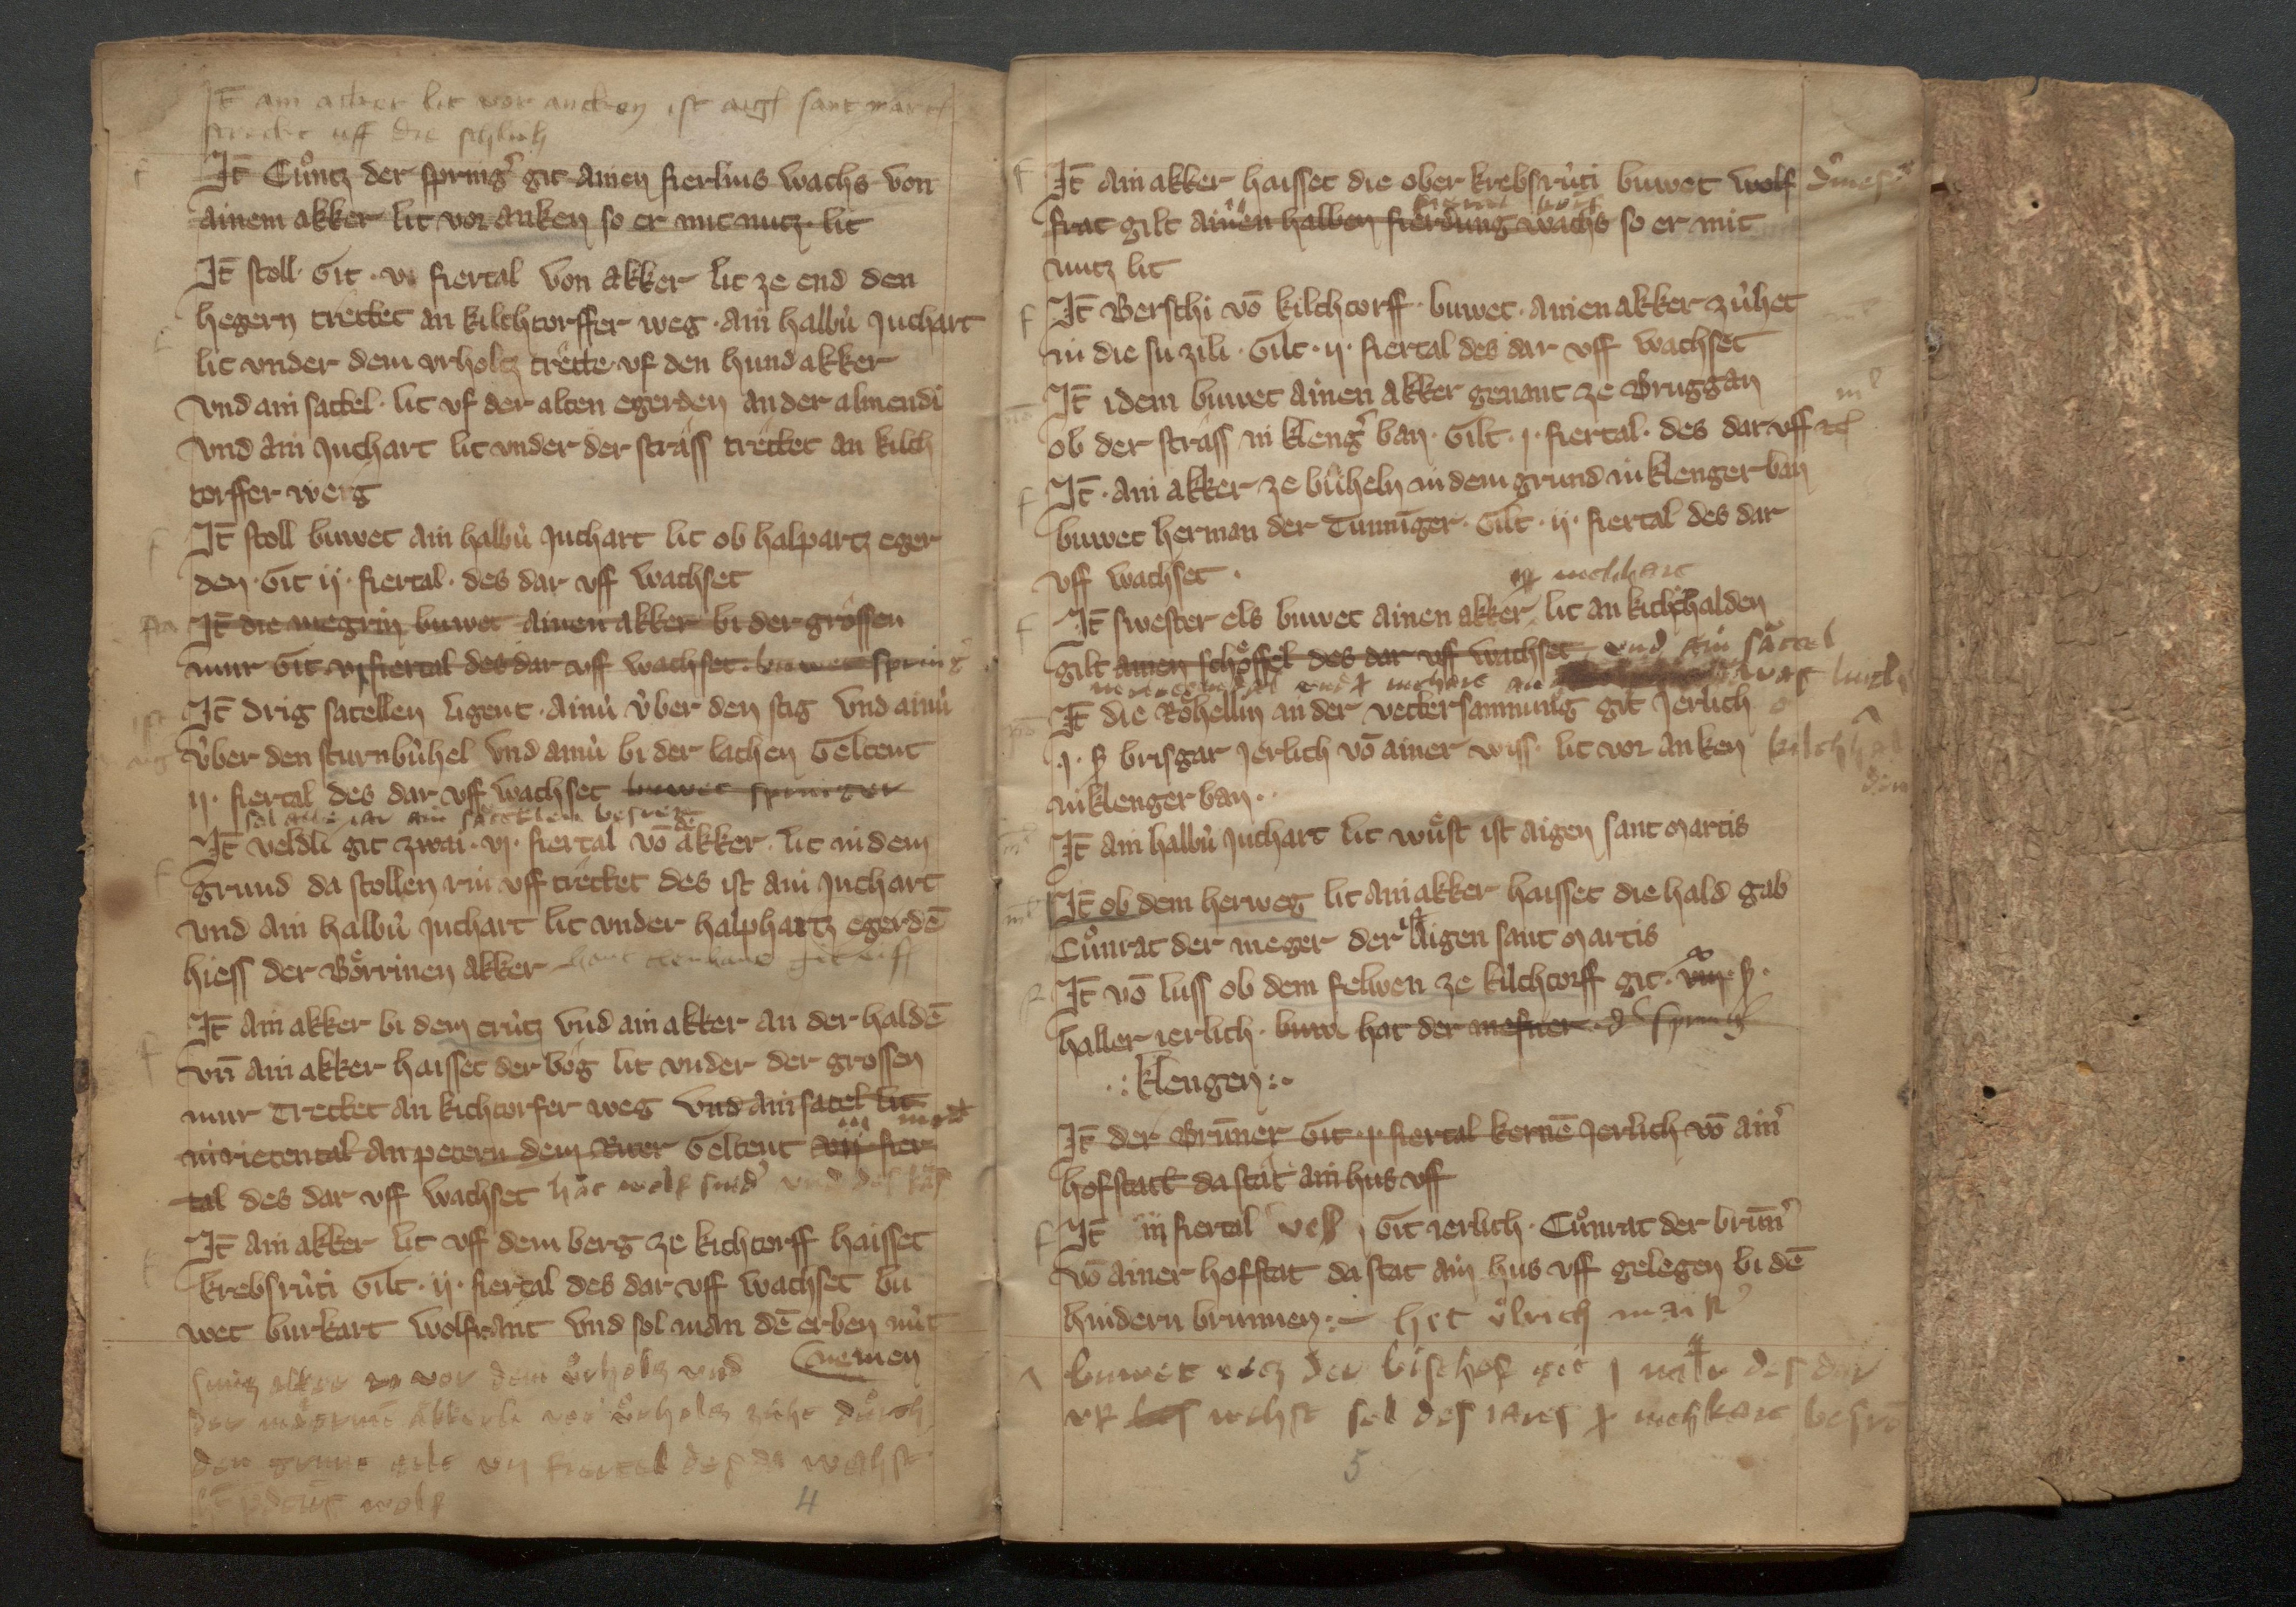 It̄ ain acker lit vor ancken ist aigē sant martī
strecket uff die schlůch
It̄ Cůntz der springˀ git ainen fierlins wachs von
ainem akker lit vor anken so er mit nutz lit
It̄ stoll git · vi fiertal von akker lit ze end den
hegern trettet an kilchtorffer weg · ain halbú Juchart
lit vnder dem vrholtz trette vf den hund akker
vnd ain sattel · lit vf der alten egerden an der almendi
vnd ain Juchart lit vnder der strass trettet an kilch
torffer werg
It̄ stoll buwet ain halbú Juchart lit ob halpartz eger
den · Git ij · fiertal · des dar vff wachset
It̄ die megrin buwet ainen akker bi der grossen
mur Git vj fiertal des dar vff wachset · buwet springˀ
It̄ Drig satellen ligent · ainú v́ber den stig vnd ainú
v́ber den sturnbúhel vnd ainú bi der lachen Geltent
ij · fiertal des dar vff wachset buwet springer
It̄ veldli git zwai · vj · fiertal vō akker · lit in dem
grund da stollen rin vff trettet des ist ain Juchart
vnd ain halbú Juchart lit vnder halphartz egerdē
hiess der Börrinen akker
It̄ ain akker bi dem crútz vnd ain akker an der haldē
vn̄ ain akker haisset der bog lit vnder der grossen
mur Trettet an kichtorfer weg vnd ain satel lit
in rietental an petern dem Riter Geltent viij fier
tal des dar vff wachset hat wolf
It̄ ain akker lit vff dem berg ze kichtorff haisset
krebsrúti Gilt · ij · fiertal des dar vff wachset bu
wet burkart wolfrant vnd sol man dē erben nút
nemen
akker vor dem vrholtz vnd
der akkerli vor vrholtz zúht durch
den grunt gilt vij fiertel des da wechst
wolf
4
It̄ ain akker haisset die ober krebsrúti buwet wolf
frat gilt ainen halben fierdung wachs so er mit
nutz lit
It̄ Berschi vō kilchtorff · buwet · ainen akker zúhet
in die su zili · Gilt · ij · fiertal des dar vff wachset
It̄ idem buwet ainen akker genant ze Bruggan
ob der strass in klengˀ ban · Gilt · j · fiertal · des dar vff
It̄ · ain akker ze búheln in dem grund in klenger ban
buwet herman der Tuninger · Gilt · ij · fiertal des dar
vff wachset ·
It̄ swester els buwet ainen akker lit an kichhalden
gilt ainen schöffel des dar vff wachset vnd ain sattel
It̄ die Röhellin in der vettersammung git Jerlich
· j · ß brisgar Jerlich vō ainer wiss · lit vor anken kilchhal
den
in klenger ban · ·
It̄ ain halbú Juchart lit wůst ist aigen sant martis
It̄ ob dem herweg lit ain akker haisset die hald gab
Cůnrat der meger der ist aigen sant martis
It̄ vō luss ob dem felwen ze kilchtorff git · viij · ß ·
haller ierlich · buw hat der mesner
· : klengen : ·
It̄ der Brunner Git · j · fiertal kernē Jerlich vō ainˀ
hofstatt da stat ain hus vff
It̄ iij fiertal git ierlich · Cůnrat der brunˀ
vō ainer hofstat da stat ain hus vff gelegen bi dē
hindern brunnen : hat vlrich
buwet der bischof git j des dar
vf wehst sol des iares
5